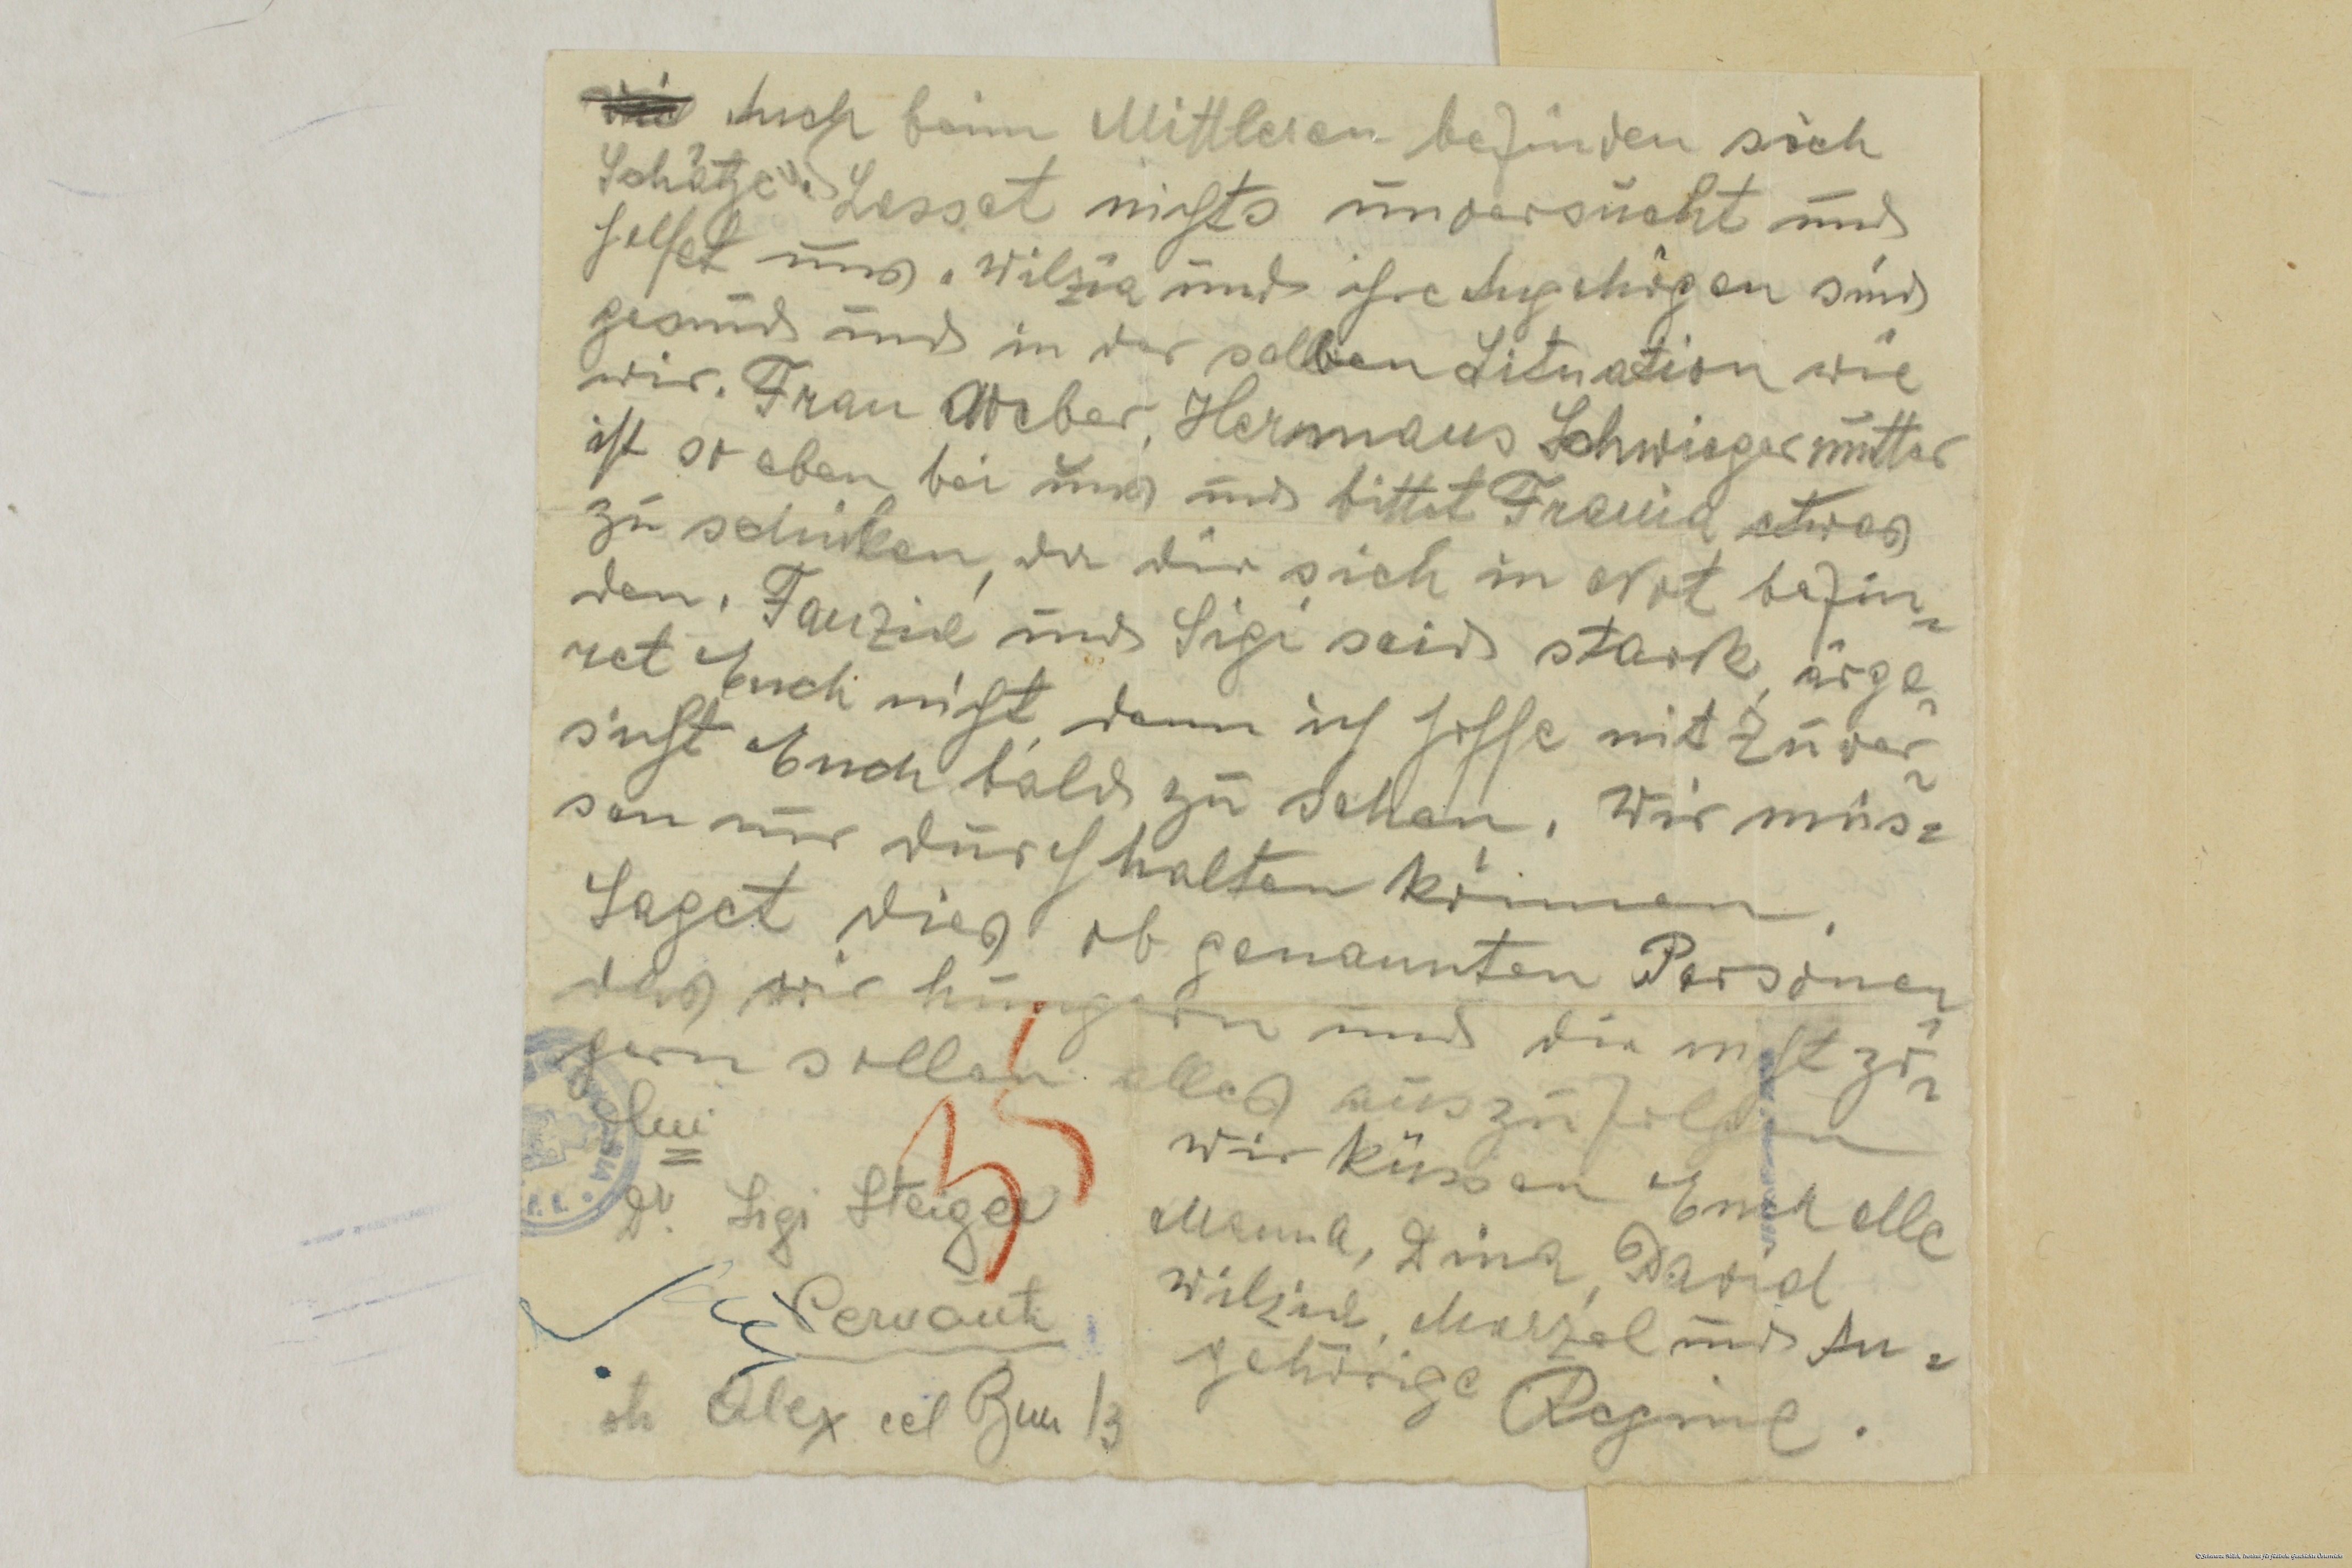 Auch beim Mittleren befinden sich
Schätze. Lasset nichts unversucht und
helfet uns. Wilzia und ihre Angehörgen sind
gesund und in der selben Situation wie
wir. Frau Weber, Hermans Schwiegermutter
ist so eben bei uns und bittet etwas
zu schicken, da die sich in Not befin-
den. und Sigi seid stark, ärge-
ret Euch nicht, denn ich hoffe mit Zuver-
sicht Euch bald zu sehen. Wir müs-
sen nur durchhalten können.
Saget dies ob genannten Personen
das wir hungern und die nicht zö-
gern sollen alles auszufolgen
Wir küssen Euch alle
Mama, Dina, David
Wilzia, und An-
gehörige Regine.
Dr. Sigi Steiger
str Alex cel Bun 13
35